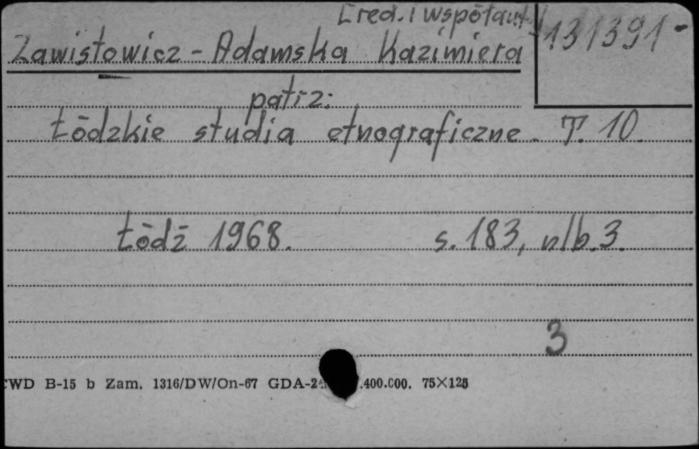 [red. i współaut.]
131391
Zawistowicz-Adamska Kazimiera
patrz:
Łódzkie studia etnograficzne. T. 10.
Łódź 1968. s. 183, nlb. 3.
3
CWD B-15 b Zam. 1316/DW/On-67 GDA-2 .400.000. 75×125